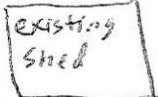 existing
shed